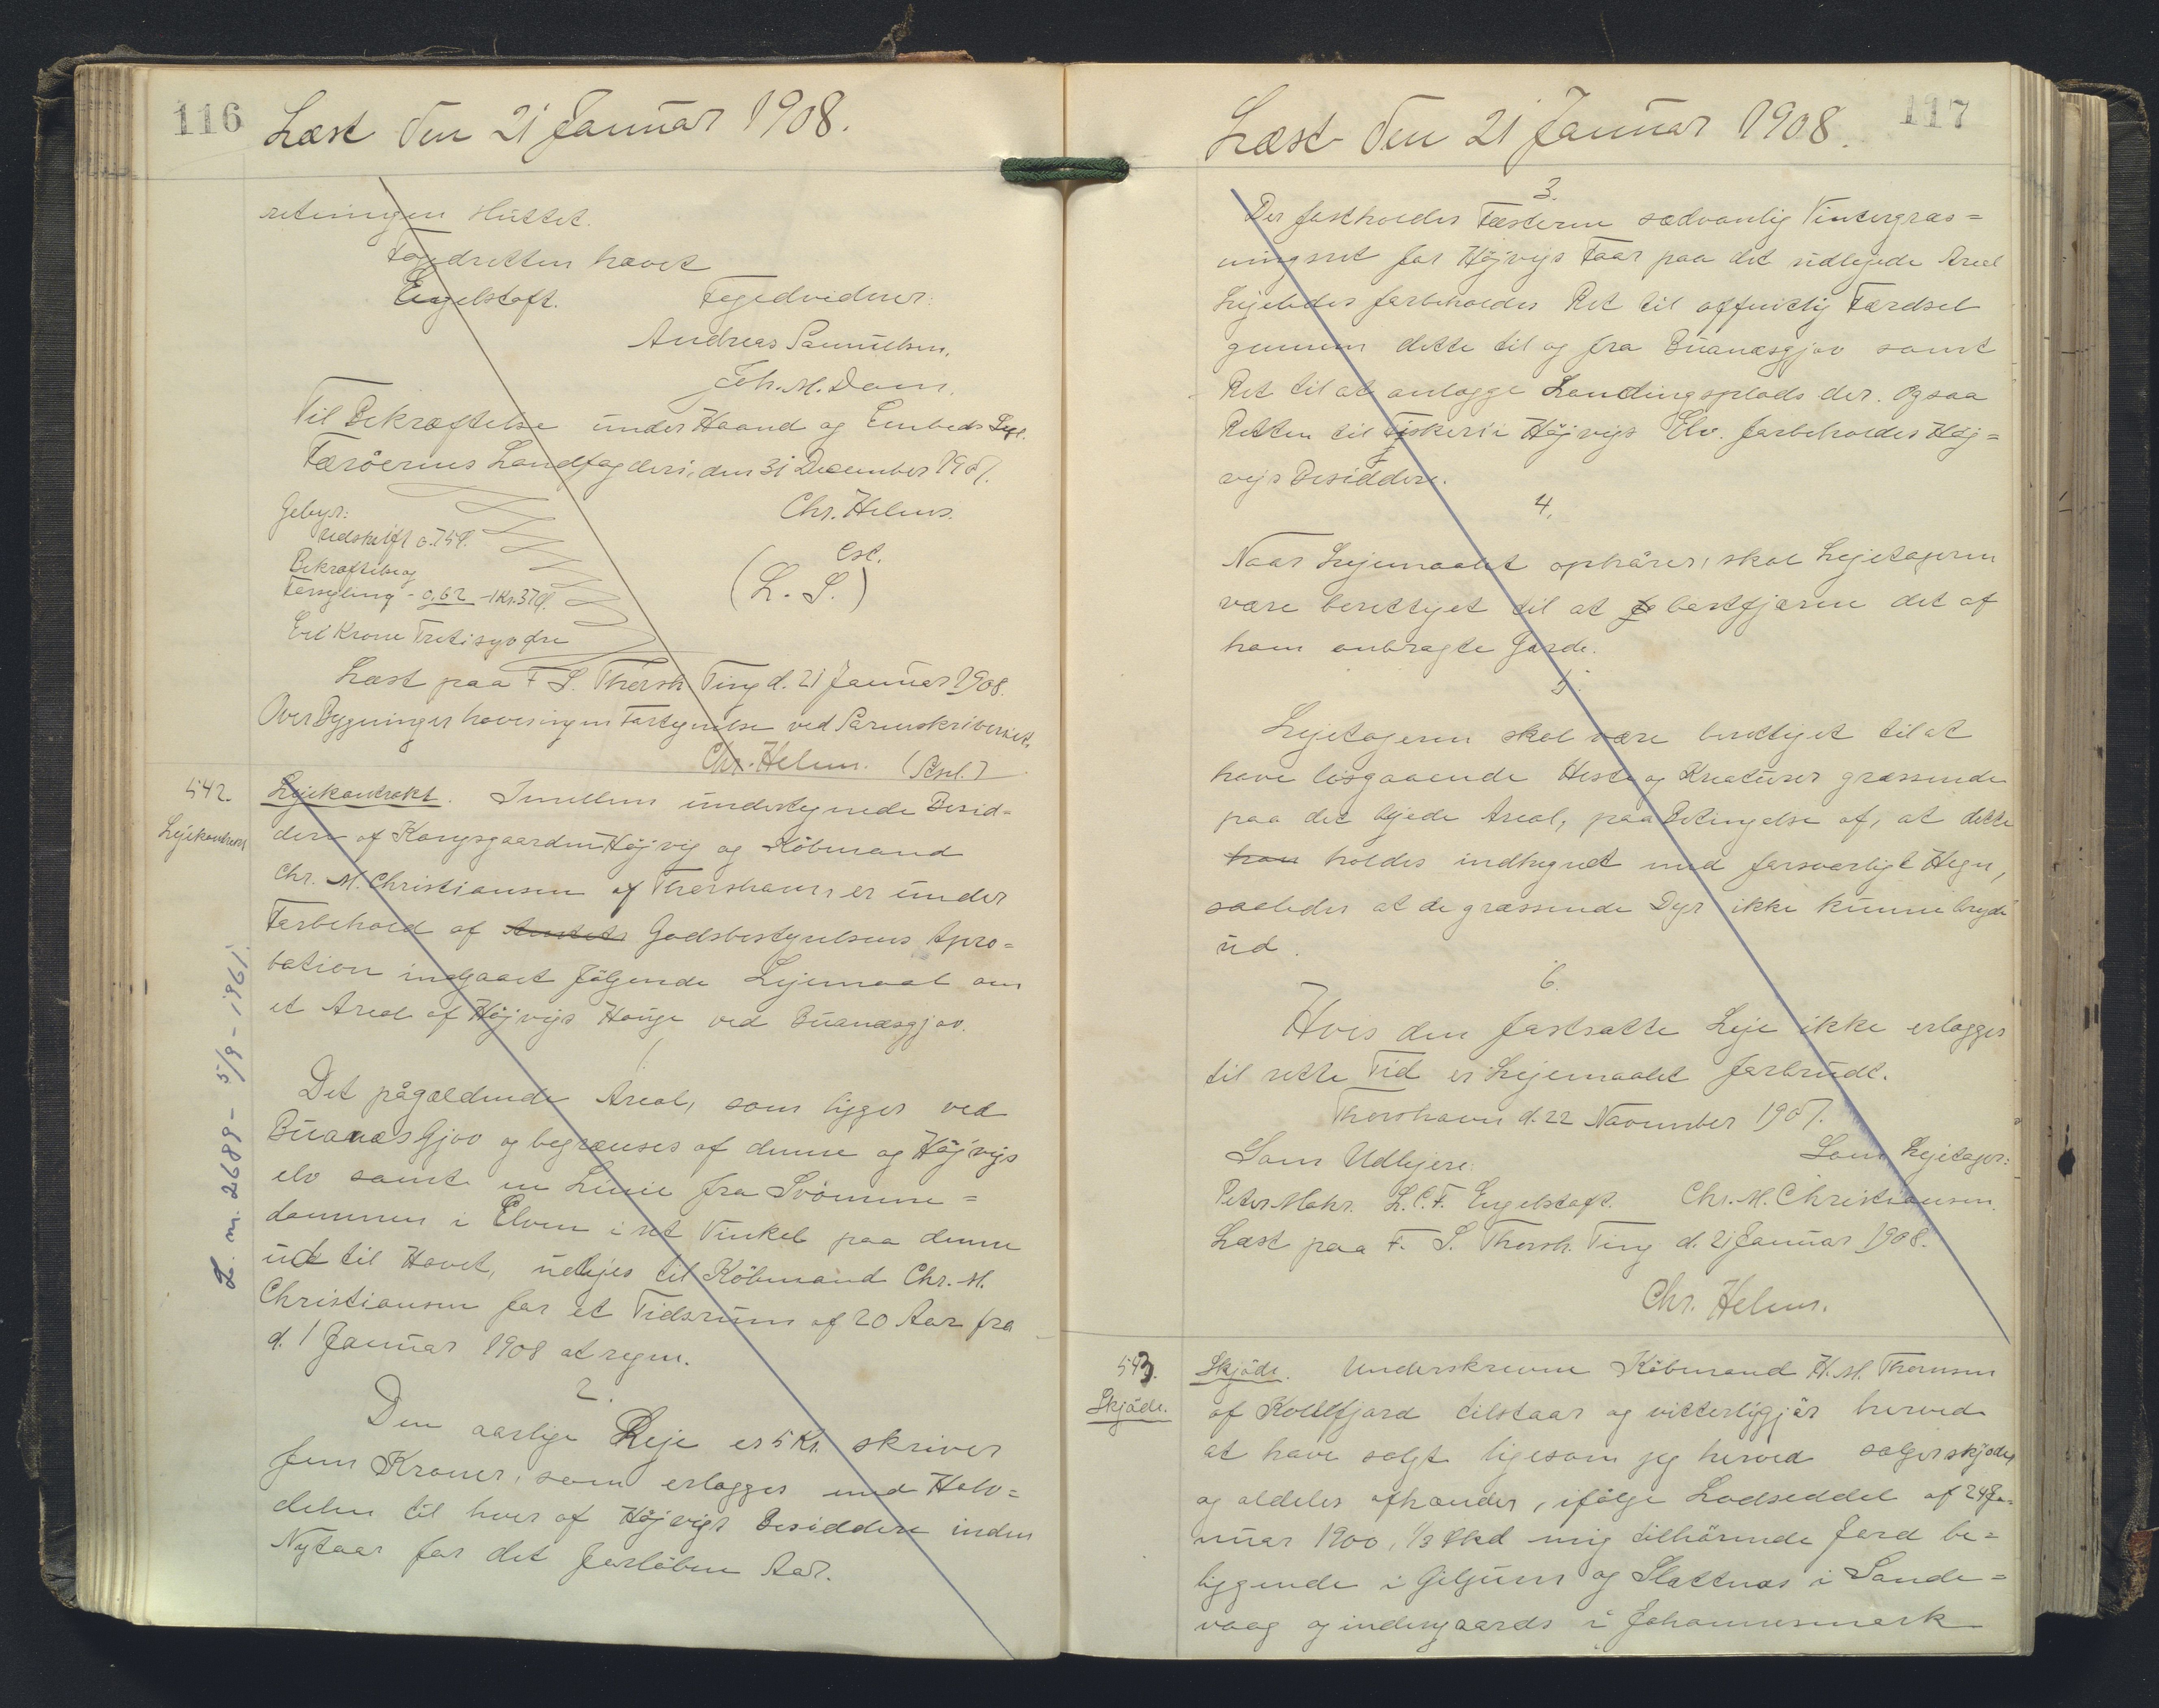 116
Læst den 21 Januar 1908.
retningen sluttet.
Fogedretten hævet
Engelstoft. Fogedvidner:
Andreas Samuelsen.
Joh. M. Dam.
Til Bekræftelse under Haand og Embeds Segl.
Færöernes Landfogderi, den 31 December 1907.
Chr. Helms.
Gebyr:
Udskrift 0.75 Ø.
Bekræftelse og
Forsegling - 0,62 - 1 Kr. 37 Ø.
Een Krone Tretisyv Øre
cst.
(L. S.)
Læst paa F. S. Thorsh. Ting d. 21 Januar 1908.
Over Bygninger haves ingen Fortegnelse ved Sorenskriveriet.
Chr. Helms. (Psnl.)
542.
Lejekontrakt
Lejekontrakt. Imellem undertegnede Besid=
dere af Kongsgaarden Højvig og Köbmand
Chr. M. Christiansen af Thorshavn er under
Forbehold af Amtets Godsbestyrelsens Apro=
bation indgaaet følgende Lejemaal om
et Areal af Højvigs Hauge ved Buanæsgjov.
1
Det pågældende Areal, som ligger ved
Buanæs Gjov og begrænses af denne og Højvigs
elv samt en Linie fra Svömme=
dammen i Elven i ret Vinkel paa denne
ud til Havet, udlejes til Köbmand Chr. M.
Christiansen for et Tidsrum af 20 Aar fra
d. 1 Januar 1908 at regne.
2.
Den aarlige Leje er 5 Kr. skriver
fem Kroner, som erlægges med Halv=
delen til hver af Højvigs Besiddere inden
Nytaar for det forløbne Aar.
L. nr. 2689 - 5/9 - 1961.
117
Læst den 21 Januar 1908.
3.
Der fastholdes Fæsterne sædvanlig Vintergræs=
ningsret for Højvigs Faar paa det udlejede Areal
Ligeledes forbeholdes Ret til offentlig Færdsel
gennem dette til og fra Buanæsgjov samt
Ret til at anlægge Landingsplads der. Ogsaa
Retten til Fiskeri i Højvigs Elv forbeholdes Høj=
vigs Besiddere.
4.
Naar Lejemaalet ophører, skal Lejetageren
være berettiget til at bortfjærne det af
ham anbragte Gærde.
5.
Lejetageren skal være berettiget til at
have løsgaaende Heste og Kreaturer græssende
paa det lejede Areal, paa Betingelse af, at dette
han holdes indhegnet med forsvarligt Hegn,
saaledes at de græssende Dyr ikke kunne bryde
ud.
6.
Hvis den fastsatte Leje ikke erlægges
til rette Tid er Lejemaalet forbrudt.
Thorshavn d. 22 November 1907.
Som Udlejere: Som Lejetager:
Peter Mohr. L. C. F. Engelstoft. Chr. M. Christiansen.
Læst paa F. S. Thorsh. Ting d. 21 Januar 1908.
Chr. Helms.
543.
Skjöde.
Skjöde. Underskrevne Köbmand H. M. Thomsen
af Kollefjord tilstaar og vitterliggjör herved
at have solgt ligesom jeg herved sælger skjöder
og aldeles afhænder, ifølge Lodseddel af 24 Ja-
nuar 1900, 1/3 Skd mig tilhörende Jord be=
liggende i Giljum og Slættnæs i Sande=
vaag og indengaards i Johannesmark